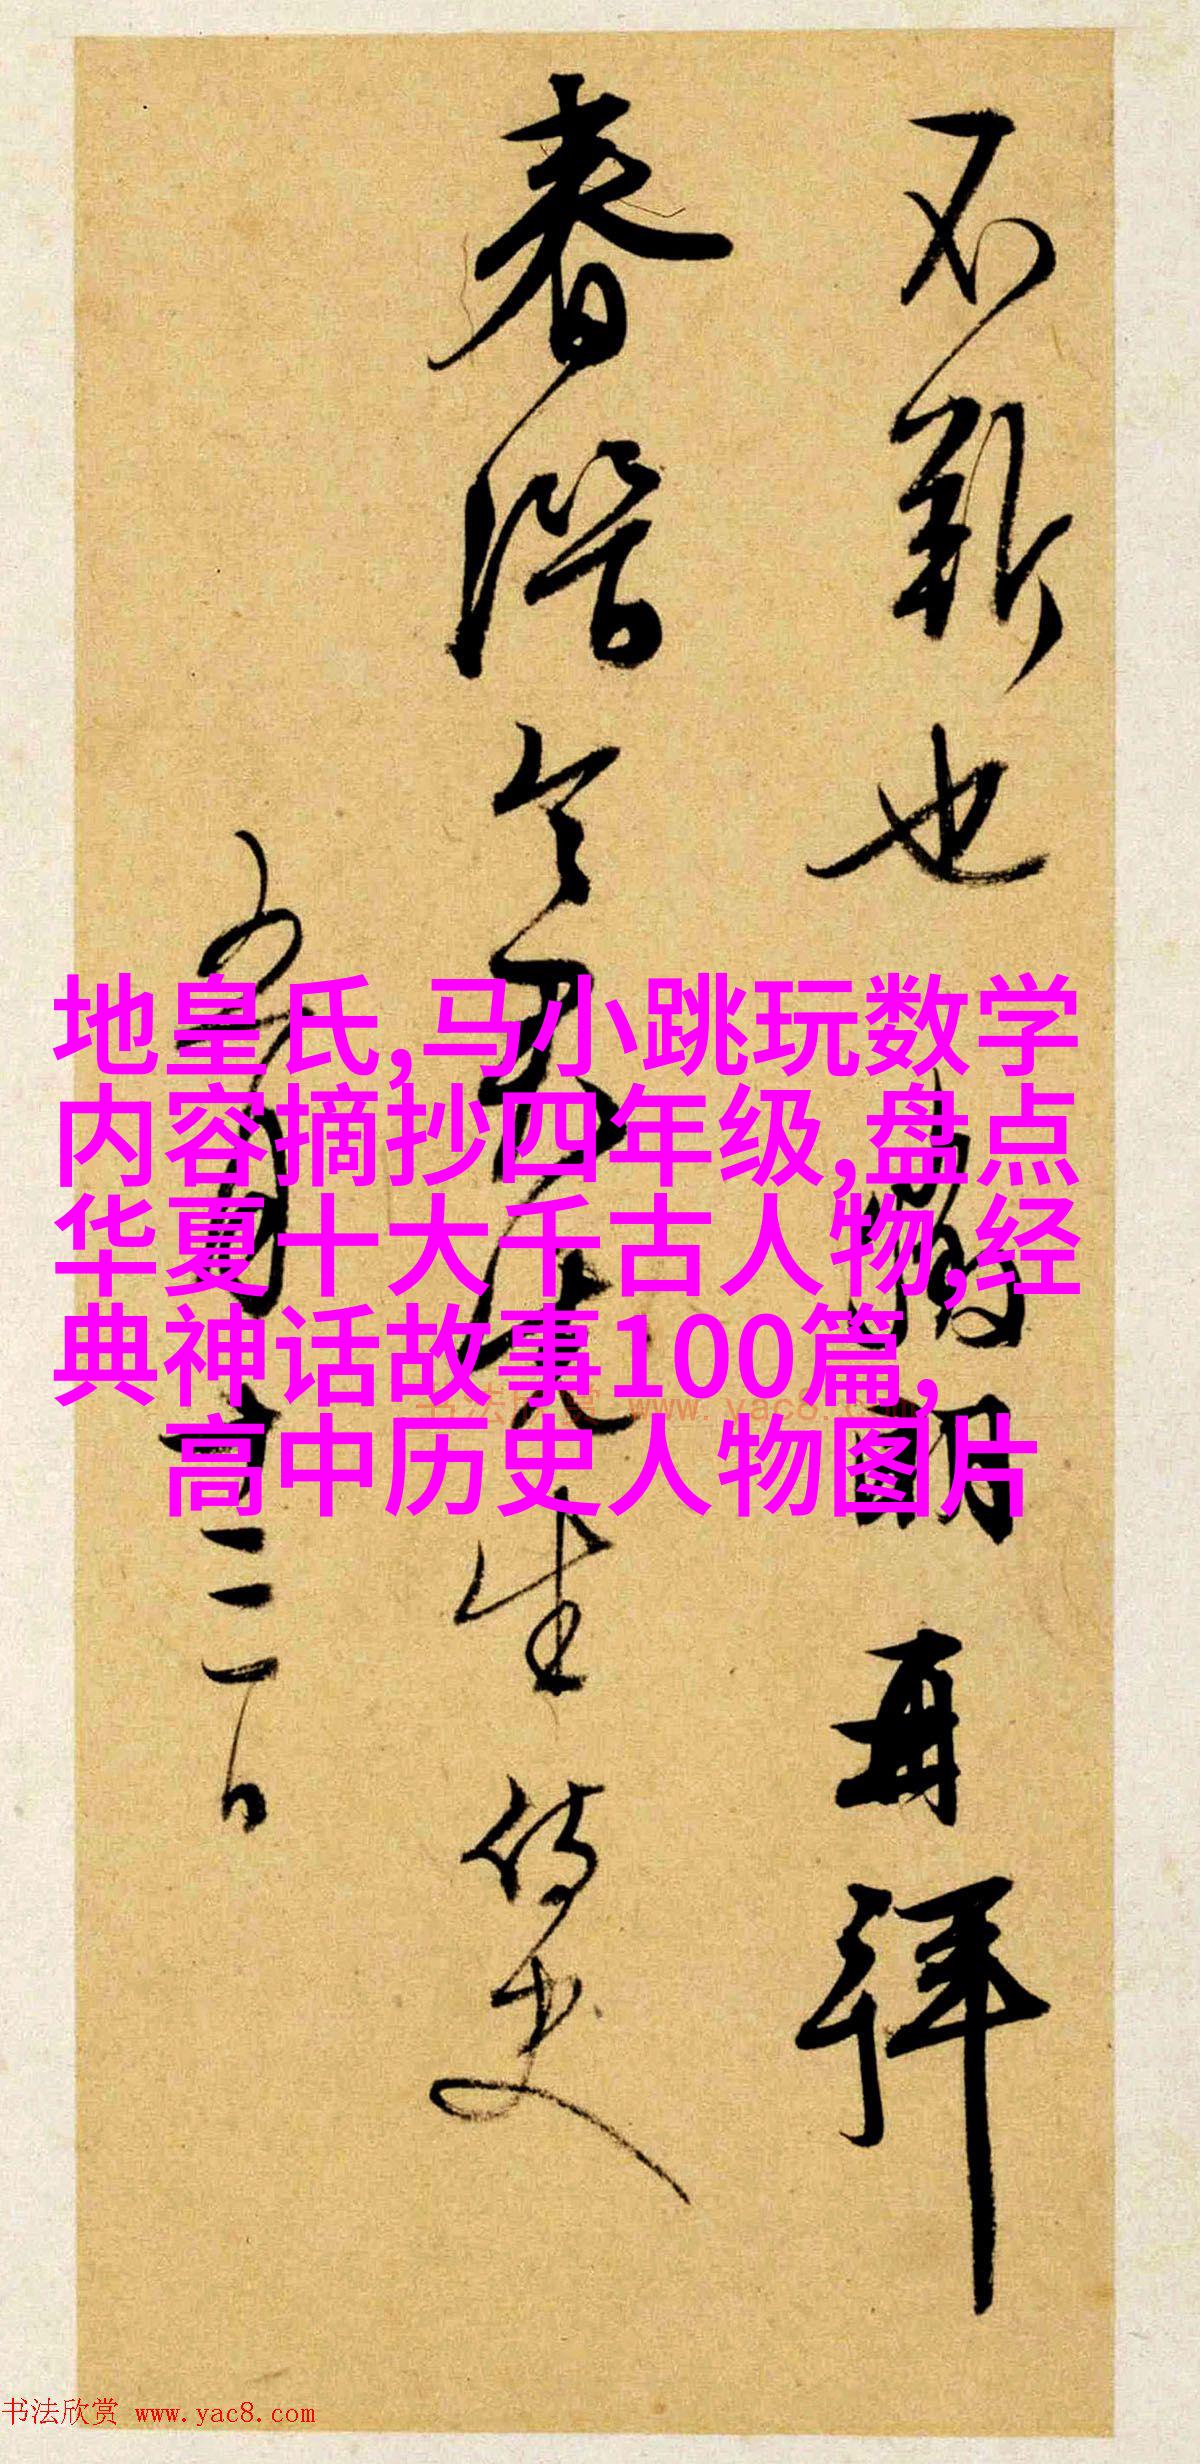 不斯也
徵明再拜
春潛令君先生侍史
五月十三日
地皇氏,马小跳玩数学
内容摘抄四年级,盘点
华夏十大千古人物,经
典神话故事100篇,
高中历史人物图片
书法欣赏 www.yac8.com
书法欣赏 www.yac8.com